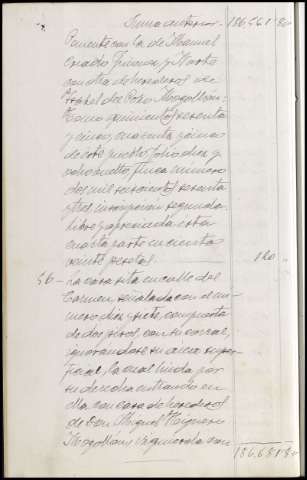 Suma anterior. 186.561 80
Poniente con la de Manuel
Criado Jimenez, y Norte
con otra de herederos de
Isabel del Pozo Mogollón:
Tomo quinientos sesenta
y cinco, cuarenta y cinco
de este pueblo, folio diez y
ocho vuelto, finca numero
dos mil seiscientos sesenta
y tres, inscripcion segunda.
Libre y apreciada esta
cuarta parte en ciento
veinte pesetas. 120 "
56 - La casa sita en calle del
Carmen, señalada con el nu-
mero diez y siete, compuesta
de dos pisos, con su corral,
ignorandose su área super-
ficial, la cual linda por
su derecha entrando en
ella con casa de herederos
de Don Miguel
Mogollón, izquierda con
186.681 80